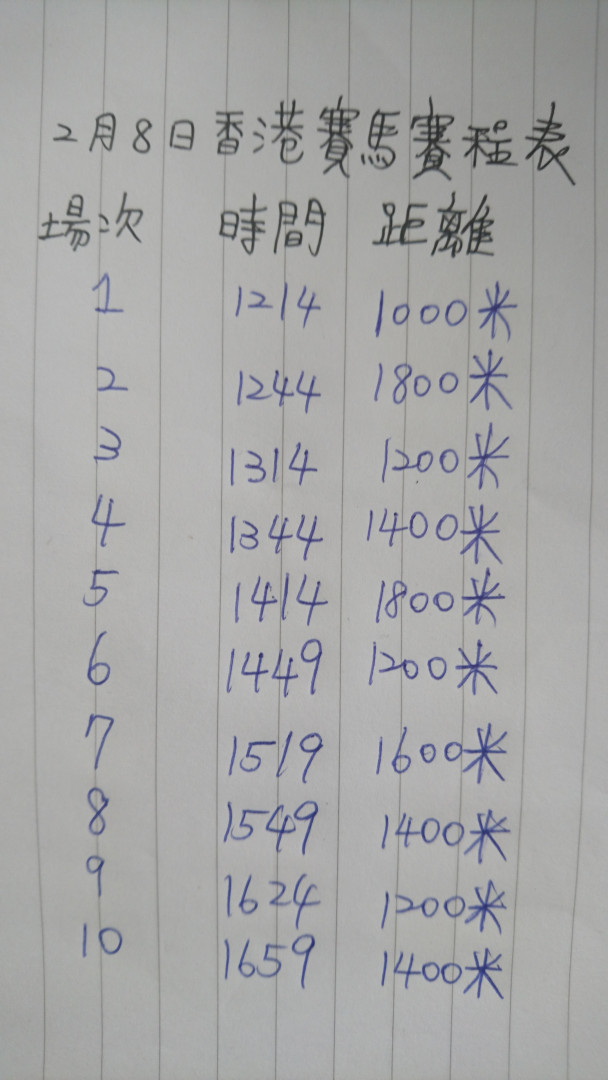 2月8日香港賽馬賽程表
場次 時間 距離
1 1214 1000米
2 1244 1800米
3 1314 1200米
4 1344 1400米
5 1414 1800米
6 1449 1200米
7 1519 1600米
8 1549 1400米
9 1624 1200米
10 1659 1400米